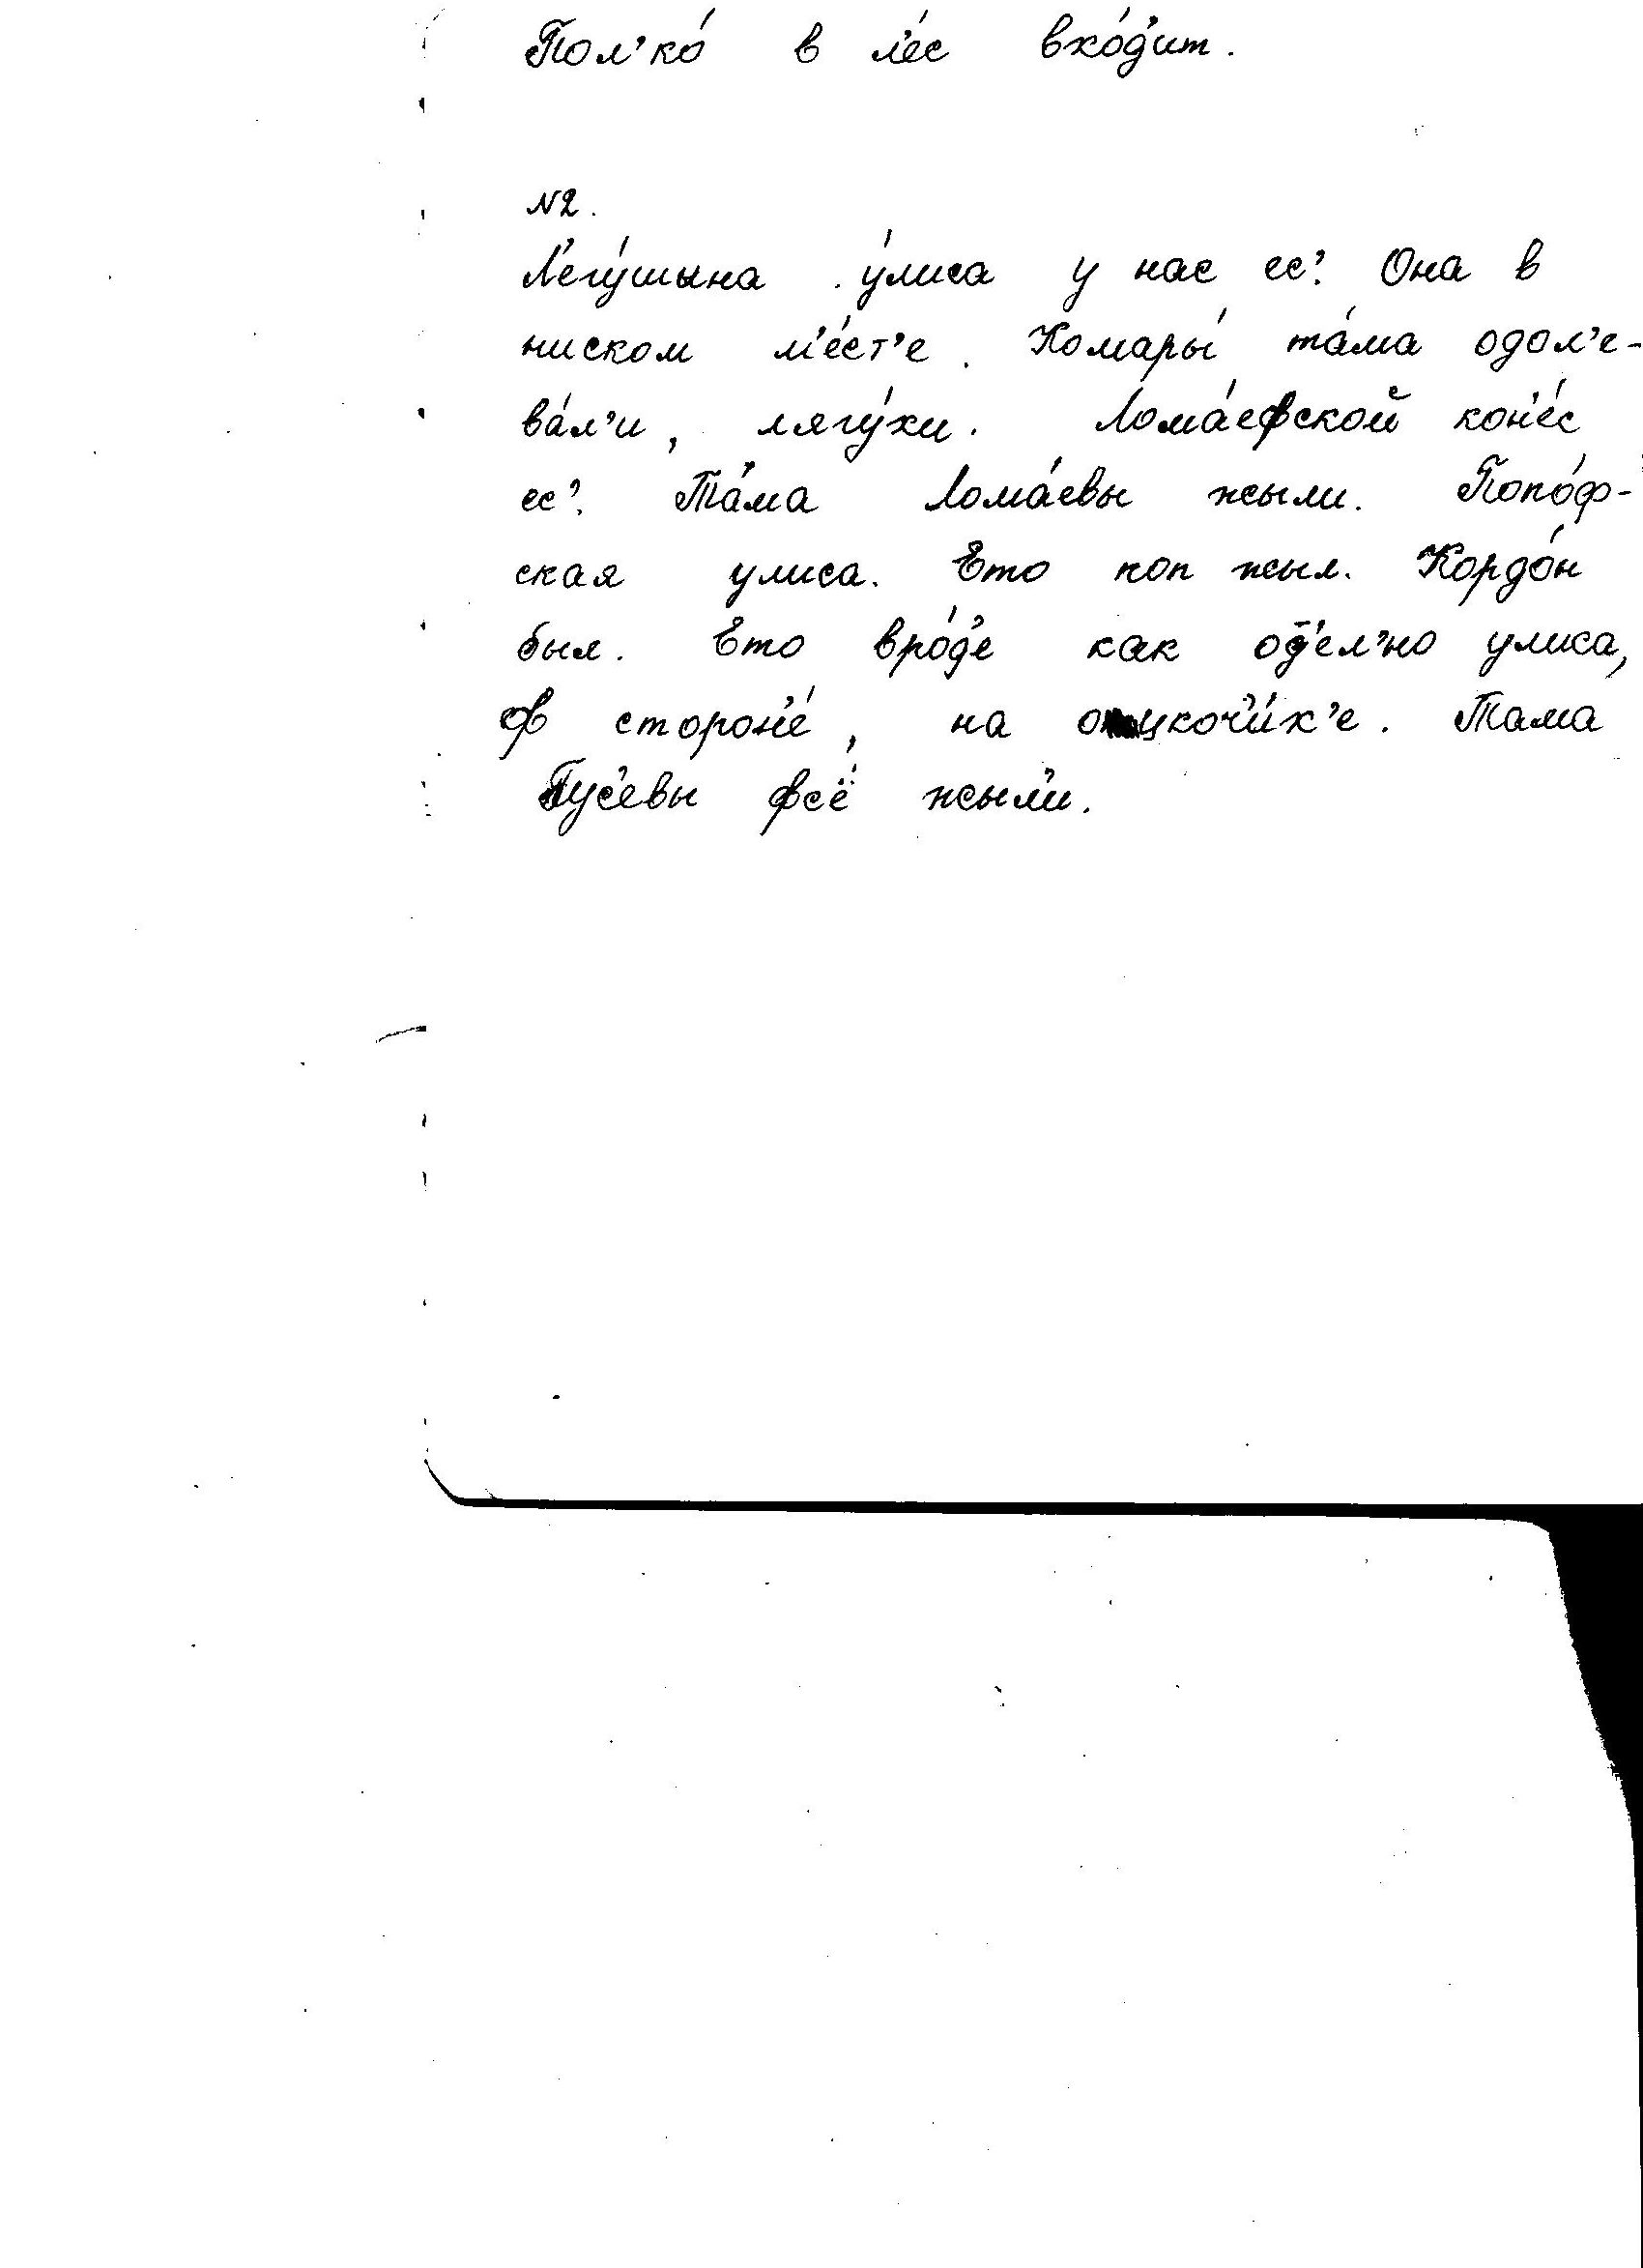 Пол'ко́ в л'е́с вхо́д'ит.
N2.
Л'егу́шына у́лиса у нас ес'. Она в
ниском м'е́ст'е. Комары́ та́ма одол'е-
ва́л'и, лягу́хи. Лома́ефской кон'е́с
ес'. Та́ма Лома́евы жыли. Попо́ф-
ская улиса. Ето поп жыл. Кордо́н
был. Ето вро́д'е как од̄'ел'но улиса,
ф сторон'е́, на оцкоч'и́х'е. Тама
Гус'евы фс'ё жыл'и.